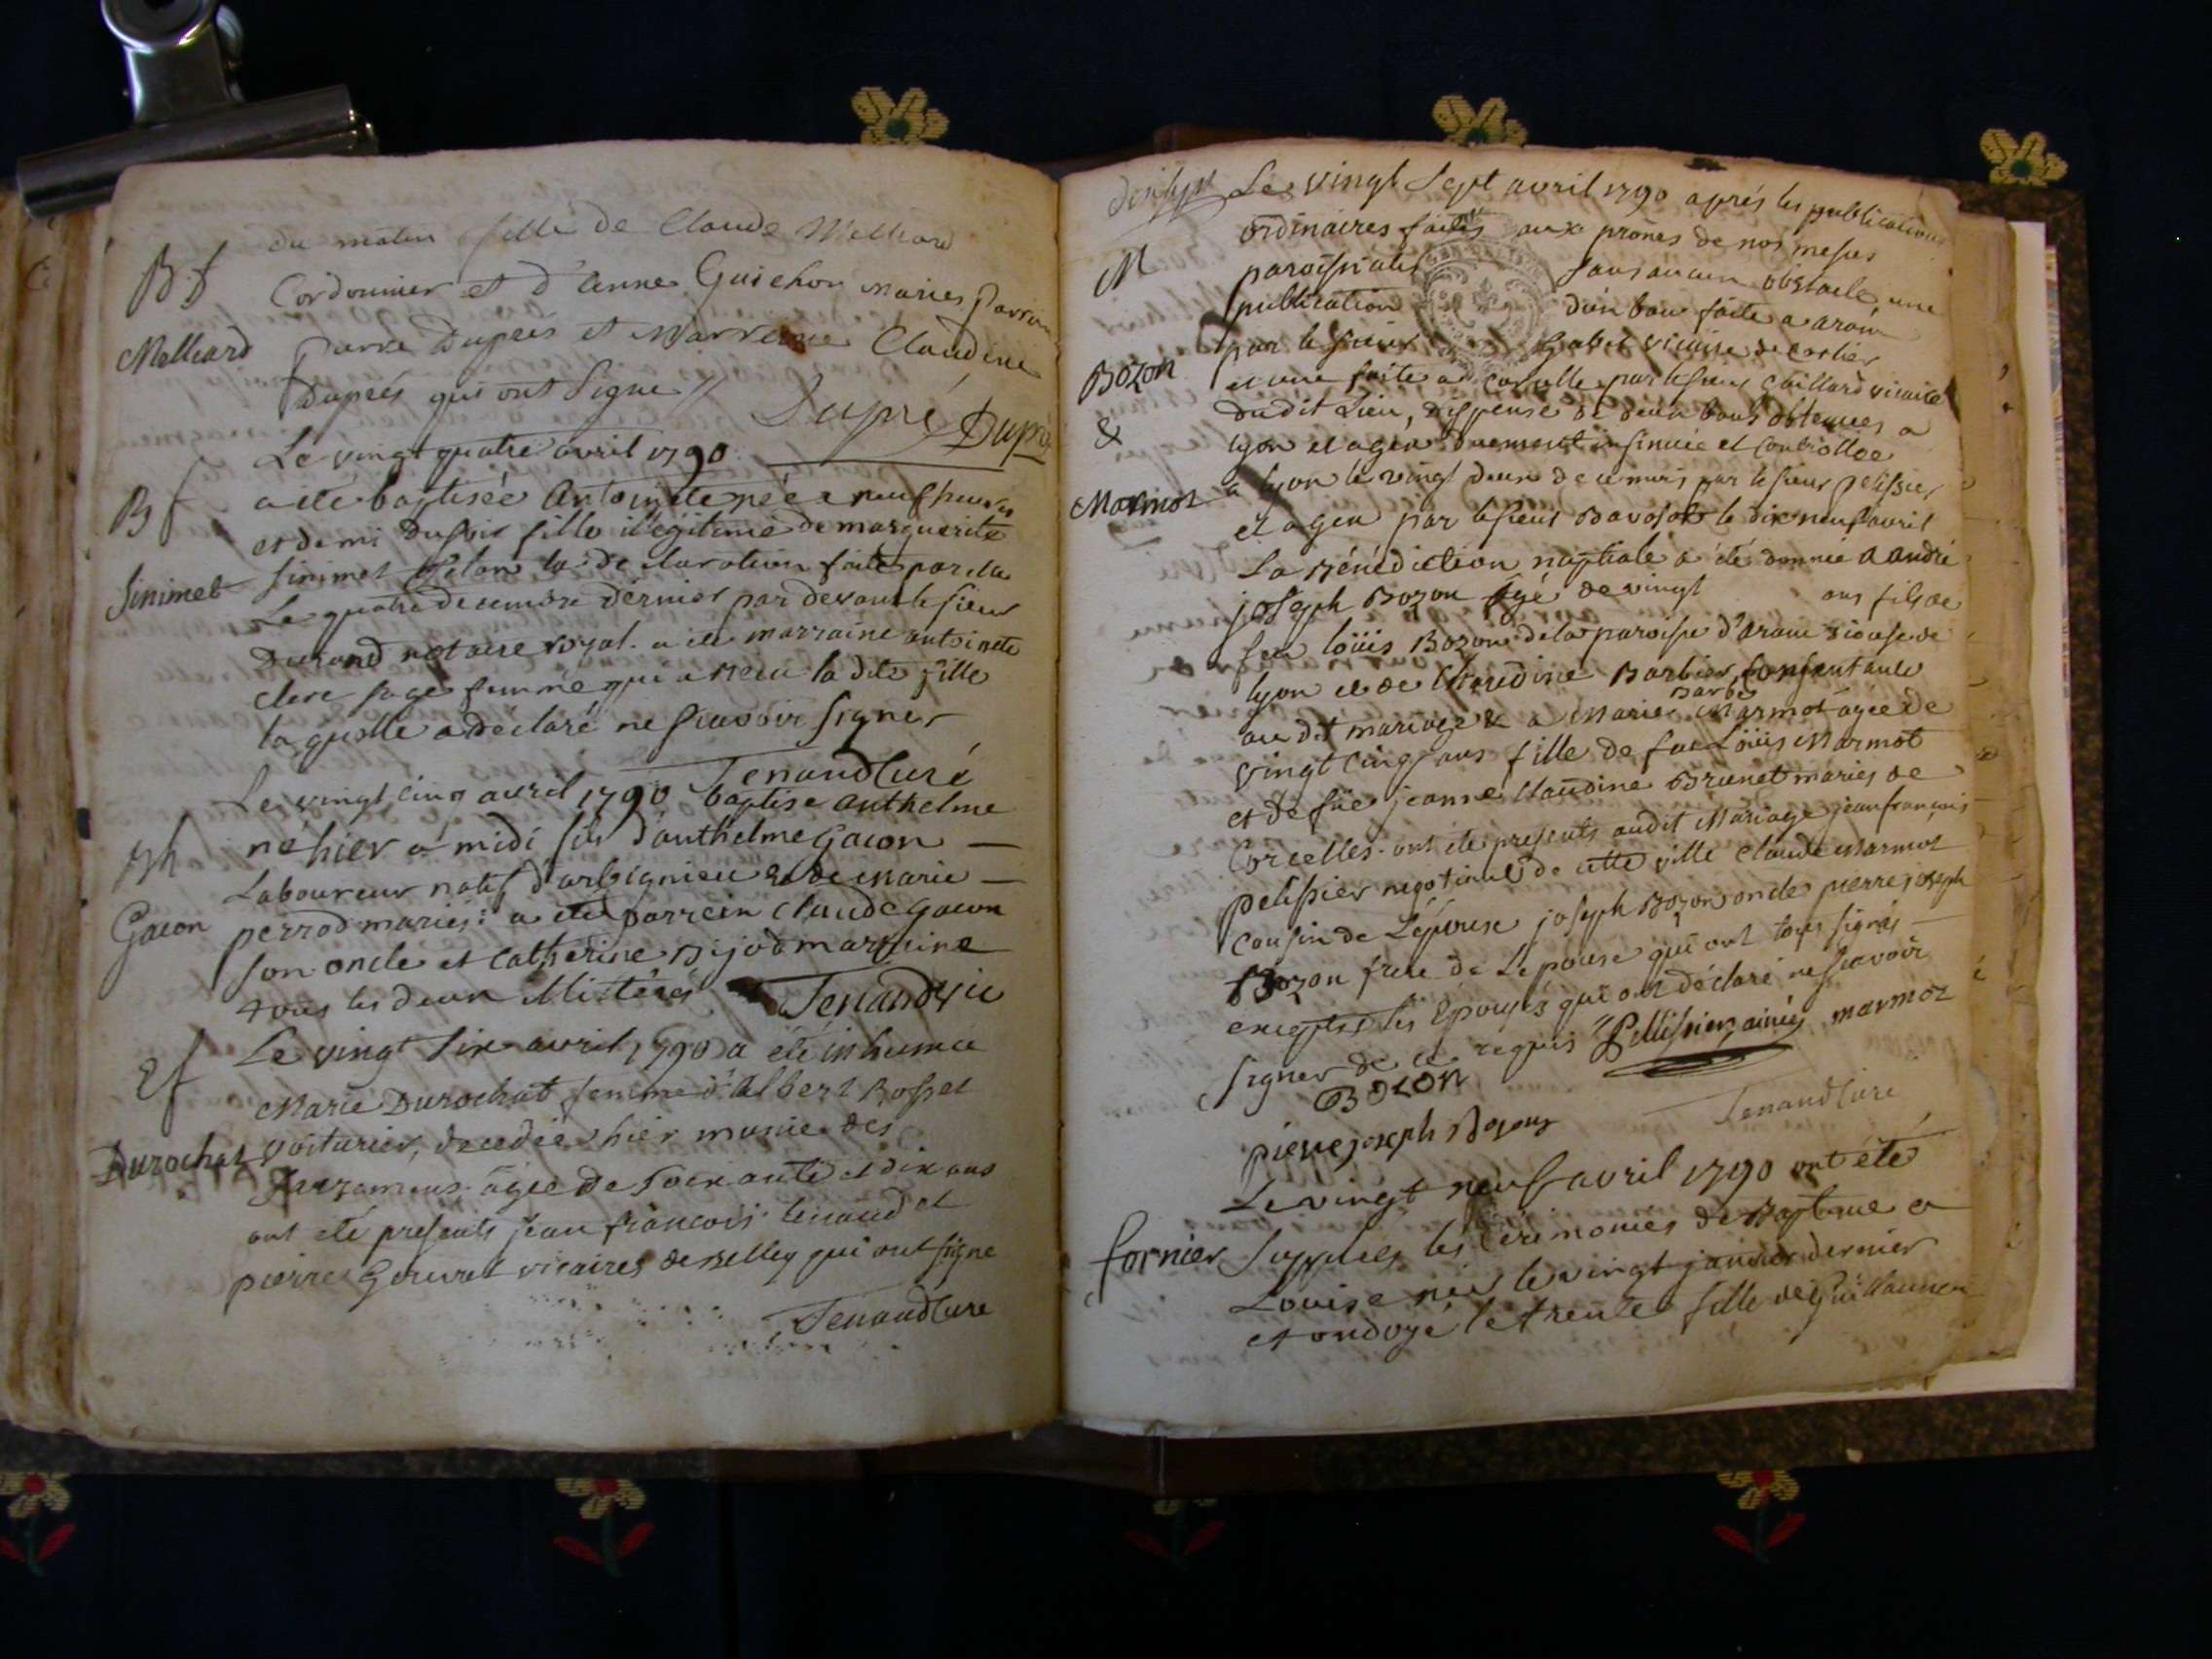 du matin fille de Claude Melliard
B f
Cordonnier et d'Anne Guichon mariés Parrain
Melliard
pierre Duprés et Marreine Claudine
Duprés qui ont Signé //
Dupré Dupré
Le vingt quatre avril 1790
B f
a été baptisée Antoinete née a neuf heures
et demi du soir fille illegitime de marguerite
Sinimet
Sinimet selon la declaration faite par elle
Le quatre decembre dernier par devant le sieur
Durand notaire royal. a été marraine antoinete
clerc sage femme qui a recu la dite fille
laquelle a déclaré ne scavoir signer
Tenand Curé
Le vingt cinq avril 1790 baptisé Anthelme
né hier a midi fils d'anthelme Gacon —
Laboureur natif d'arbignieu & de Marie —
Gacon
perrod mariés: a été parrein Claude Gacon
son oncle et Catherine Bijod marraine
tous les deux illitérés Tenand vic
Le vingt Six avril 1790 a été inhumée
Ef
Marie Durochat femme d'Albert Rosset
Durochat
voiturier, decedée hier munie des
Sacremens agée de soixante et dix ans
ont été presents jean francois tenand et
pierre vicaires de Belley qui ont signé
Tenand Cure
Le vingt Sept avril 1790 aprés les publications
ordinaires faites aux prônes de nos messes
M
paroissiales sans aucun obstacle, une
publication d'un ban faite a aroin
par le sieur vicaire de
Bozon
et une faite a corcelle par le sieur Gaillard vicaire
&
dudit Lieu, dispense de deux bans obtenues a
lyon et a gen duement insinuée et Controllée
Marmot
a lyon le vingt deux de ce mois par le sieur pelissier
et a gen par le sieur le dix neuf avril
La Bénédiction nuptiale a été donnée a andré
joseph Bozon agé de vingt ans fils de
feu loüis Bozon de la paroisse d'aroin diocese de
lyon et de Claudine Barbier, consentante
au dit mariage & a Marie Barbe Marmot agée de
vingt cinq ans fille de feu Loüis Marmot
et de füe jeanne Claudine Brunet mariés de
Corcelles. ont été presents audit Mariage jean françois
pelissier negotiant de cette ville Claude Marmot
Cousin de L'épouse joseph Bozon oncle pierre joseph
Bozon frere de L'epouse qui ont tous signés —
exceptés les Epousés qui ont déclaré ne scavoir
signer de ce requis // Pellissier, ainé marmoz
BOZON
Tenand Cure
pierre joseph Bozon
Le vingt neuf avril 1790 ont été
fornier
Supplées les Cérémonies de Baptême a
Louise née le vingt janvier dernier
et ondoyé le trente fille de Guillaume